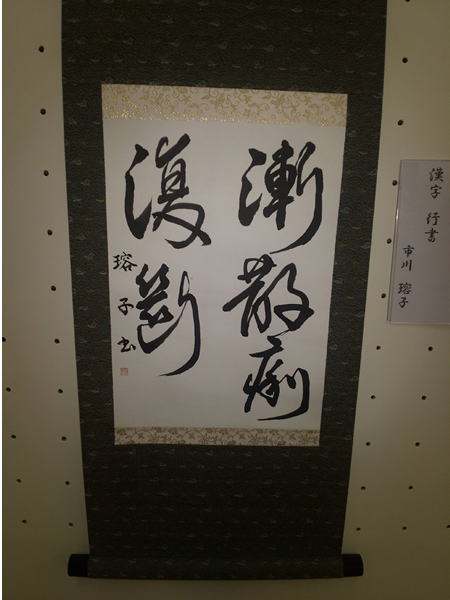 漸散痢
復斷
瑢子書
漢字 行書
市川 瑢子